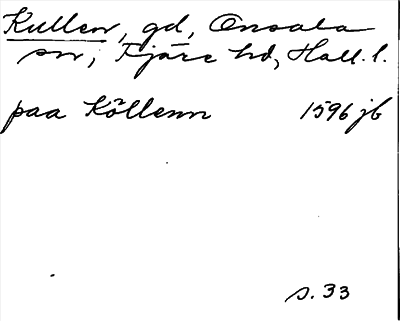 Kullen, gd, Onsala
sn, Fjäre hd, Hall. l.
paa Köllenn 1596 jb
s. 33